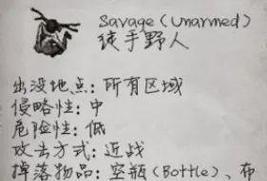 Savage(Unarmed)
徒手野人
出没地点:所有区域
侵略性:中
危险性:低
攻击方式:近战
掉落物品:空瓶(Bottle)、布